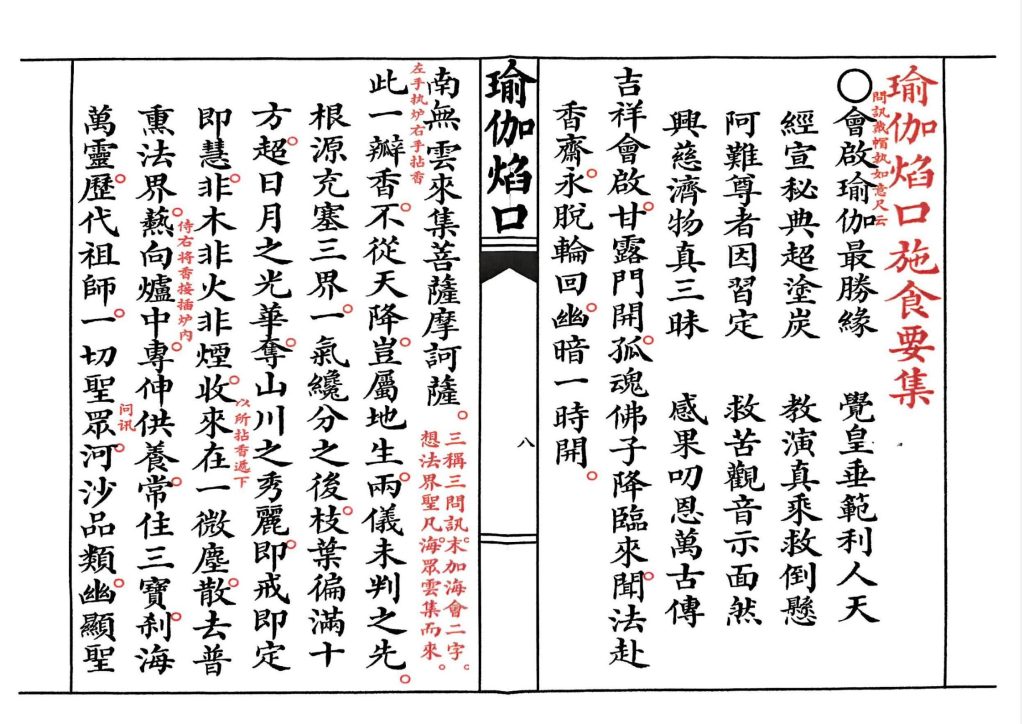 瑜伽焰口施食要集
問訊戴帽執如意尺云
〇會啟瑜伽最勝緣　覺皇垂範利人天
經宣秘典超塗炭　教演真乘救倒懸
阿難尊者因習定　救苦觀音示面然
興慈濟物真三昧　感果叨恩萬古傳
吉祥會啟。甘露門開。孤魂佛子降臨來。聞法赴
香齋。永脫輪回。幽暗一時開。
瑜伽焰口
八
南無雲來集菩薩摩訶薩。
三稱三問訊。末加海會二字。
想法界聖凡。海眾雲集而來。
左手执炉右手拈香
此一瓣香。不從天降。豈屬地生。兩儀未判之先。
根源充塞三界。一氣纔分之後。枝葉徧滿十
方。超日月之光華。奪山川之秀麗。即戒即定
即慧。非木非火非煙。收來在一微塵。散去普
以所拈香遞下
熏法界。爇向爐中。專伸供養。常住三寶。剎海
侍右将香接插炉内
萬靈。歷代祖師。一切聖眾。河沙品類。幽顯聖
问讯